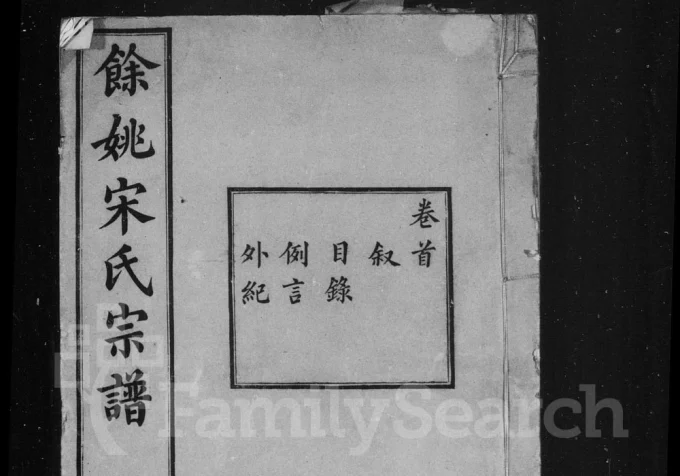 餘姚宋氏宗譜
卷首
叙
目錄
例言
外紀
FamilySearch